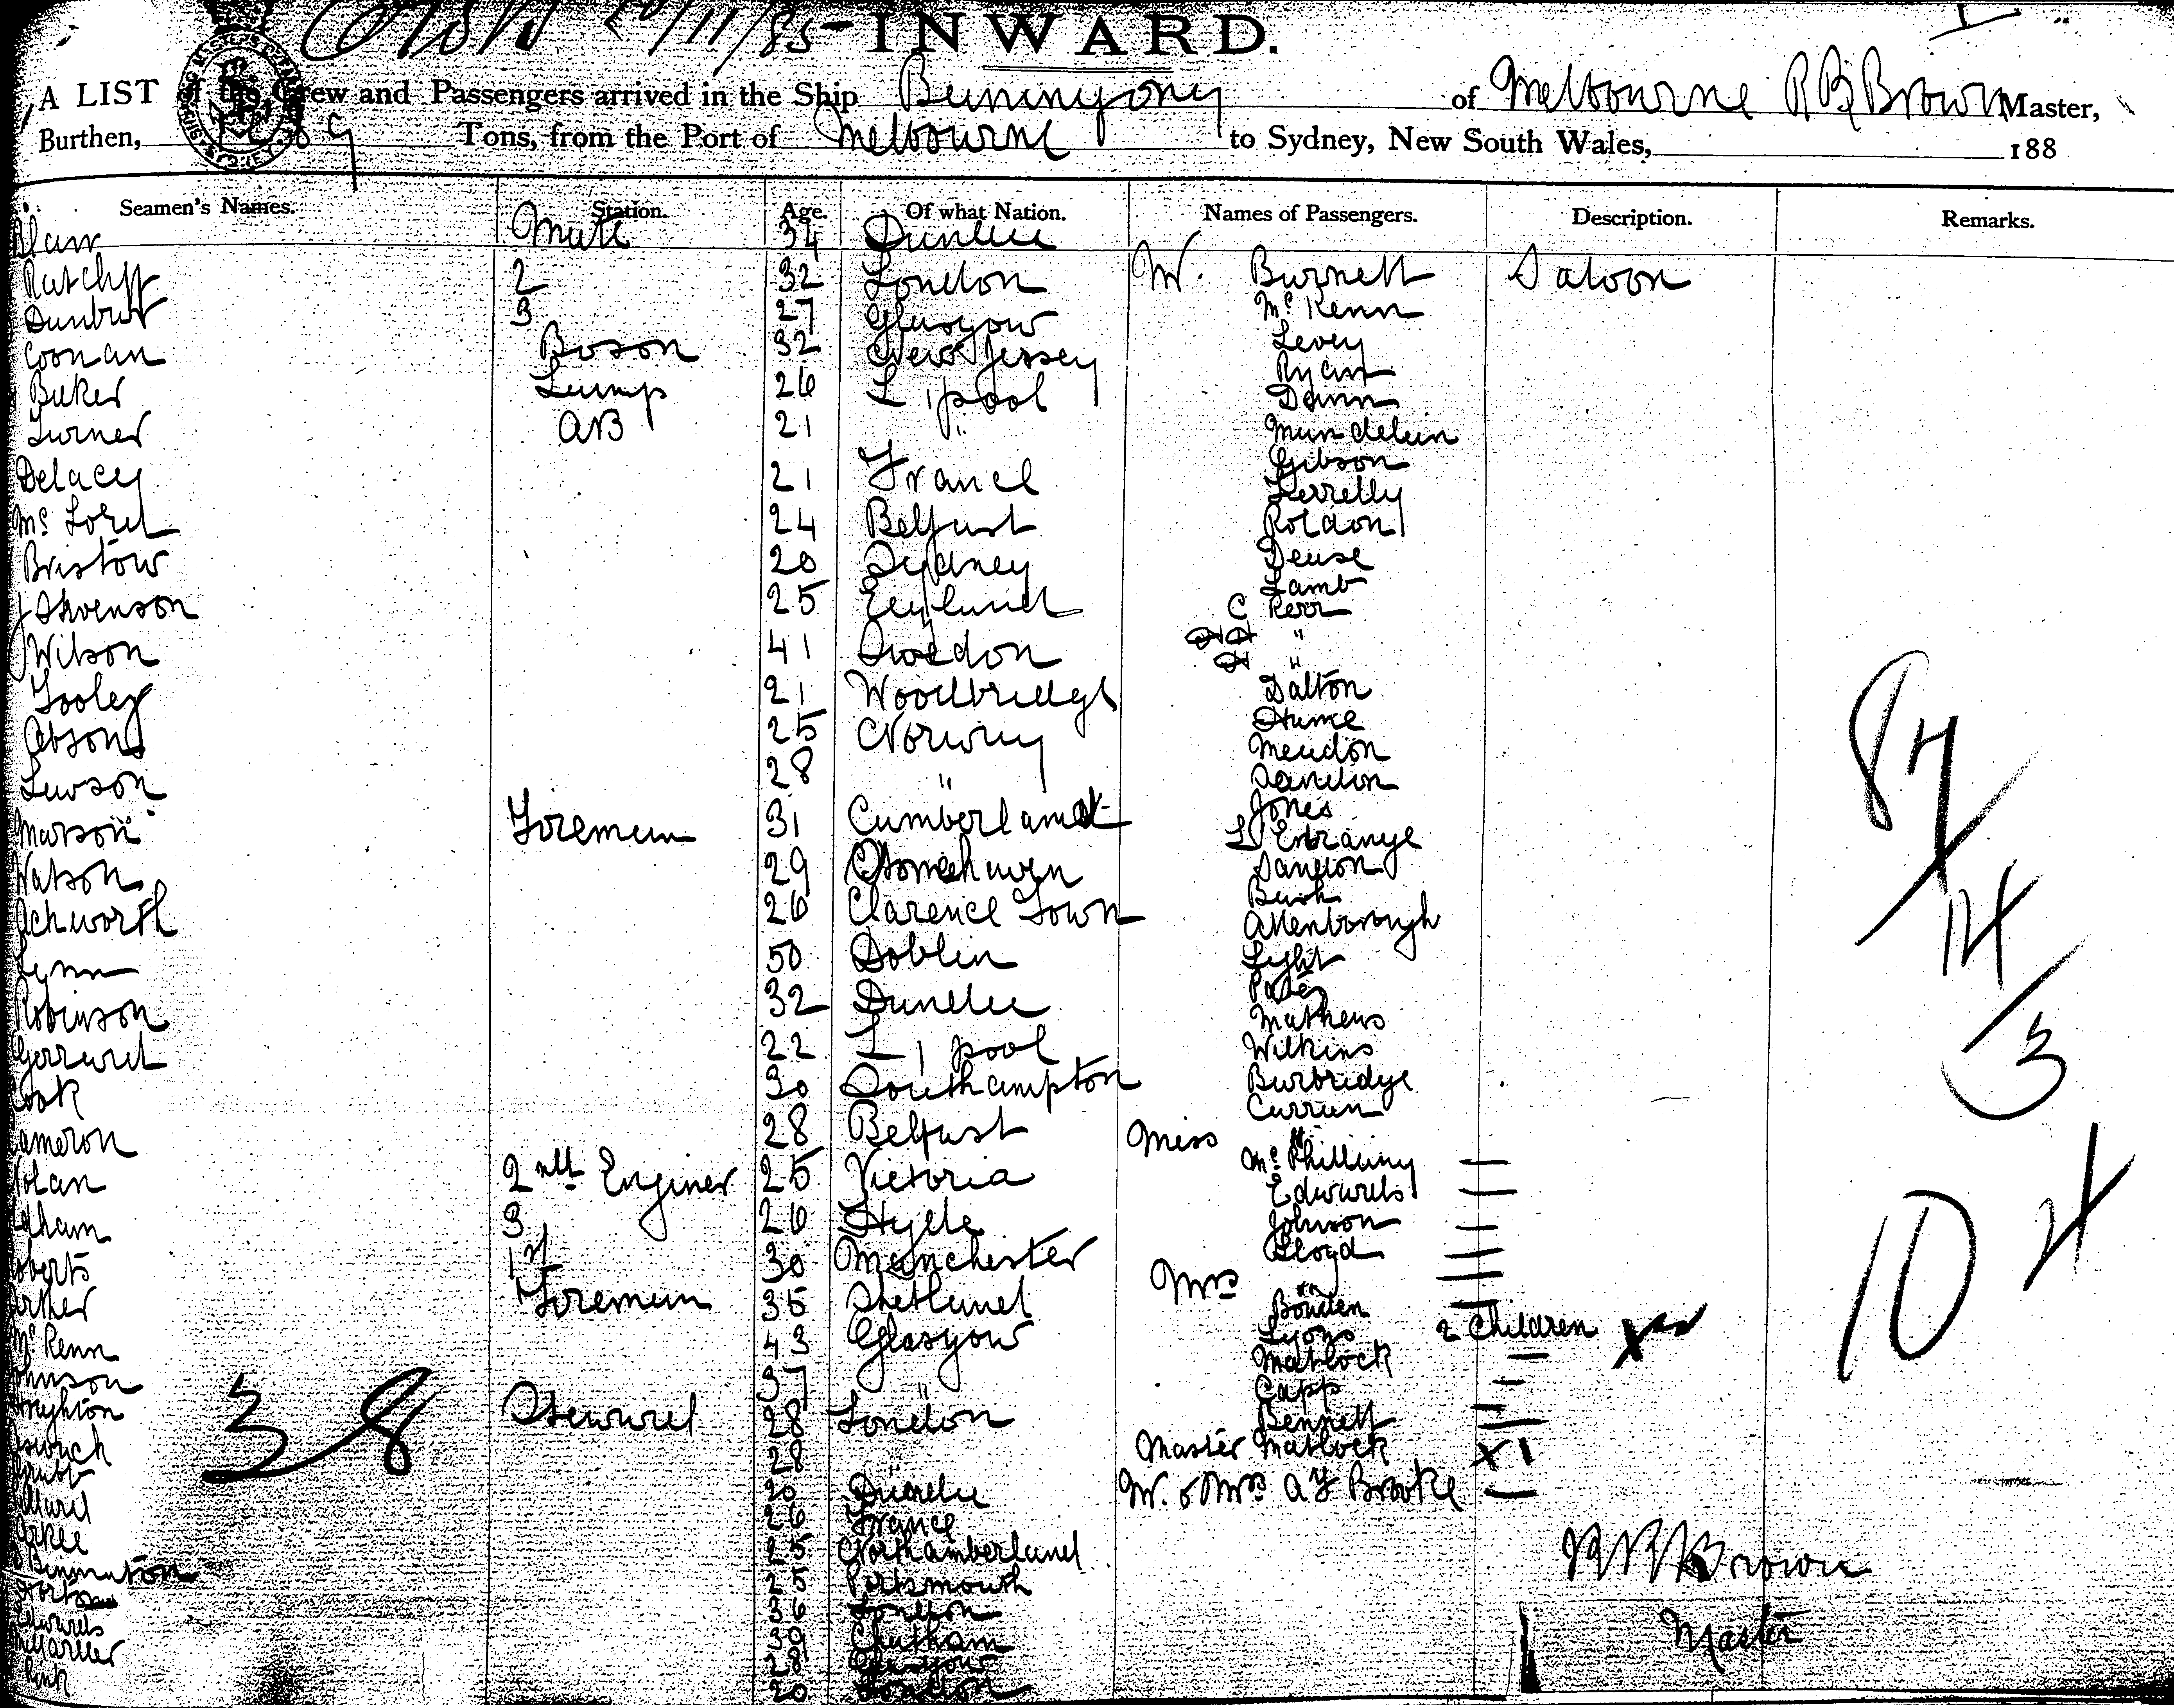 20/11/85 INWARD.
A LIST of the Crew and Passengers arrived in the Ship Buninyong of Melbourne R B Brown Master,
Burthen, Tons, from the Port of Melbourne to Sydney, New South Wales, 188
Seamen's Names. Station. Age. Of what Nation. Names of Passengers. Description. Remarks.
Mate 34 Dundee
Ratcliff 2 32 London W. Burnett Saloon
Dunbar 3 27 Glasgow McKenn
Coonan Boson 32 New Jersey Levey
Baker Lamp 26 L'pool Ryan
Turner AB 21 " Dann
Mundelein
Delacy 21 France Gibson
Kerrelly
McLord 24 Belfast Roldon
Bristow 20 Sydney Dease
Lamb
J Stevenson 25 England C Kerr
Wilson 41 Swedon "
"
Tooley 21 Woodbridge Dalton
Obson 25 Norway Hume
Mendon
Lawson 28 " Danelon
Jones
Matson Foreman 31 Cumberland L'Estrange
Watson 29 Stonehaven Dangon
Bush
Achworth 26 Clarence Town Attenborough
Lynn 50 Doblin Light
Robinson 32 Dundee Mathews
Gerrard 22 L'pool Wilkins
Cook 30 Southampton Burbridge
Curran
Cameron 28 Belfast Miss "
Nolan 2nd Enginer 25 Victoria McPhillimy —
Edwards —
3 26 Hyde Johnson —
Roberts 1st 30 Manchester Lloyd —
Foreman 35 Shetland Mrs "
Bowden
McKenn 43 Glasgow Lyons 2 Children
Johnson 37 " Matlock —
Capp —
Steward 28 London Bennett —
28 Master Matlock X 1
20 Dundee W. & Mrs A Y Brooke —
26 France
25 Northamberland
Binnington 25 Portsmouth R B Brown
Horton 36 London
Edwards 39 Chatham Master
28 Glasgow
20 London
38
87
14
3
104